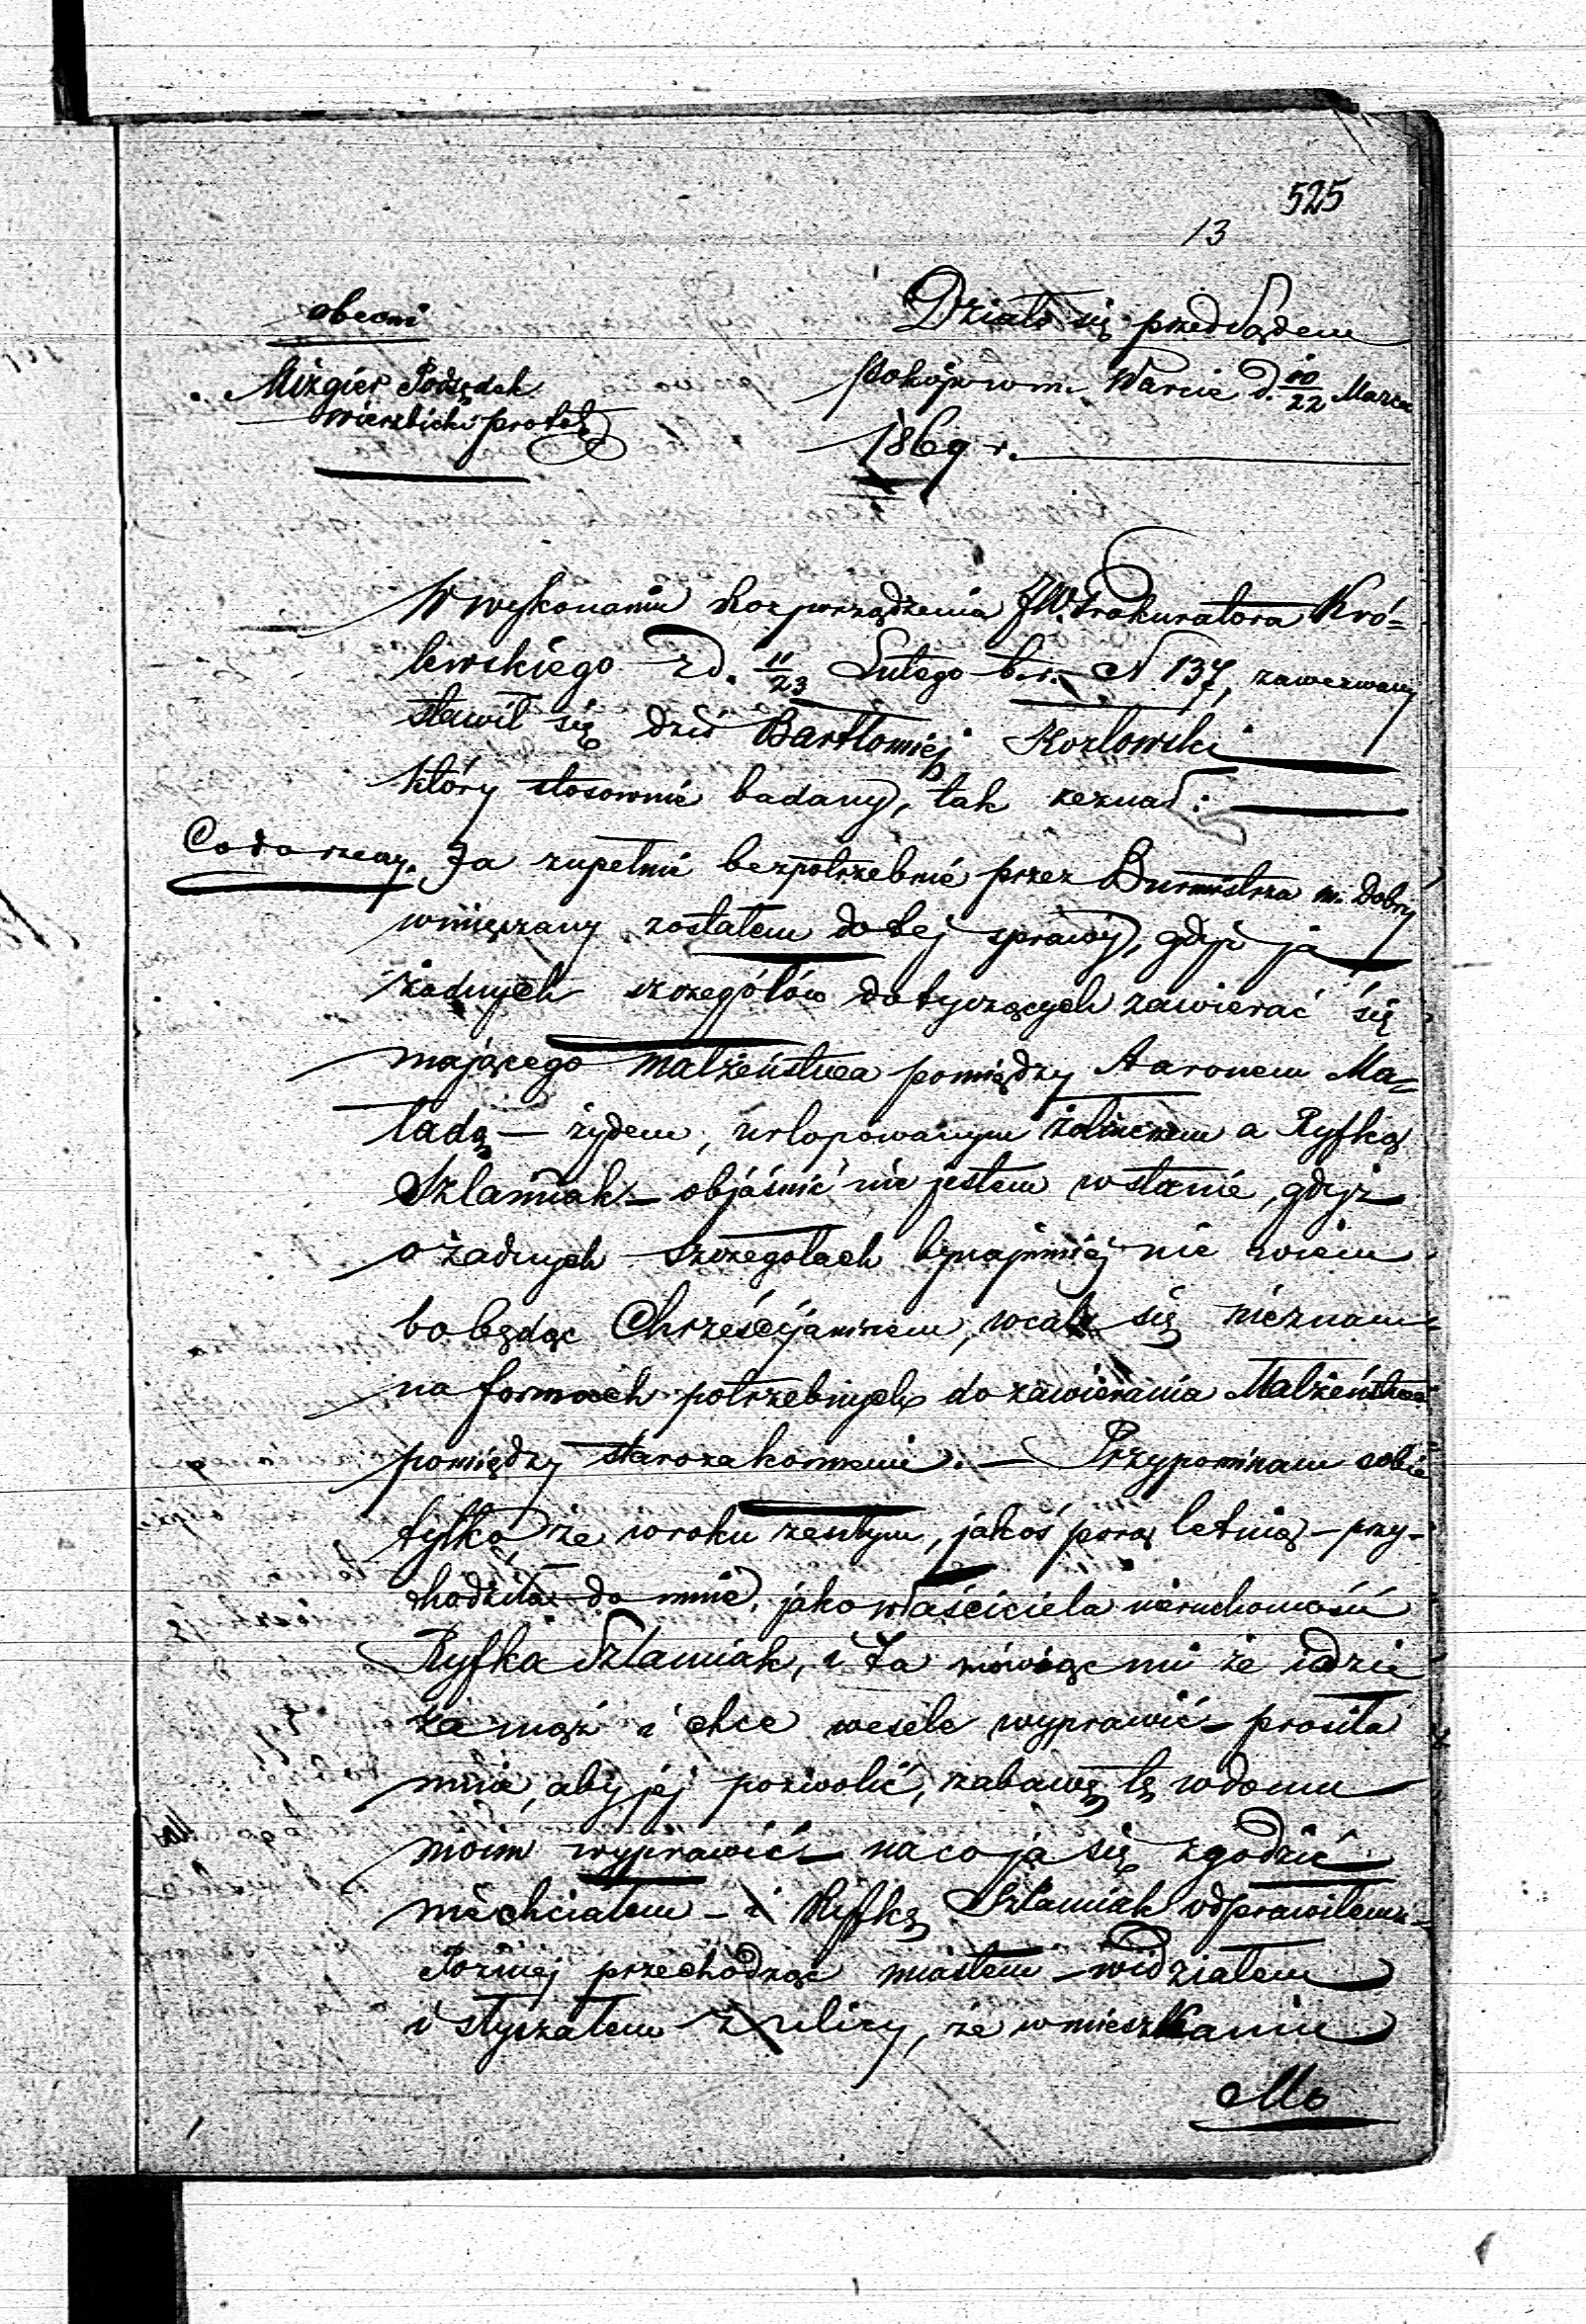 525
13
obecni
Mizgier Podsędek
Wierzbicki protok
Działo się przed Sądem
Pokoju w m. Warcie d. 10/22 Marca
1869 r.
W wykonaniu Rozporządzenia JW. Prokuratora Kró=
lewskiego z d. 11/23 Lutego b.r. N 137, zawezwany
stawił się dziś Bartłomiej Kozłowski
który stosownie badany, tak zeznał:
Co do rzeczy. Ja zupełnie bezpotrzebnie przez Burmistrza m. Dobry
wmięszany zostałem do tej sprawy, gdyż ja
żadnych szczegółów dotyczących zawierać się
mającego małżeństwa pomiędzy Aaronem Ma=
ładą — żydem, urlopowanym żołnierzem a Ryfką
Szlamiak — objaśnić nie jestem wstanie, gdyż
o żadnych szczegółach bynajmniej nie wiem
bo będąc Chrześcijaninem, wcale się nieznam
na formach potrzebnych do zawierania Małżeństwa
pomiędzy starozakonnemi. — Przypominam sobie
tylko, że w roku zeszłym, jakoś porą letnią — przy-
chodziła do mnie, jako właściciela nieruchomości
Ryfka Szlamiak, i Ta mówiąc mi że idzie
za mąż i chce wesele wyprawić — prosiła
mnie, aby jej pozwolić, zabawę tę w domu
moim wyprawić — na co ja się zgodzić
niechciałem — i Ryfkę Szlamiak odprawiłem. —
Później przechodząc miastem — widziałem
i słyszałem z ulicy, że w mieszkaniu
Mo